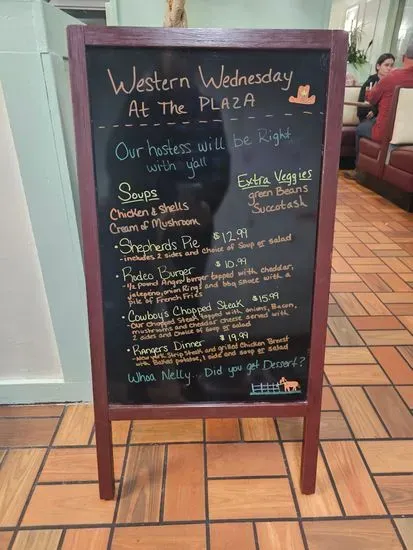 Western Wednesday
At The PLAZA
Our hostess will be Right
with y'all
Soups
Chicken & Shells
Cream of Mushroom
Extra Veggies
green Beans
Succotash
• Shepherds Pie $12.99
- includes 2 sides and choice of Soup or salad
• Rodeo Burger $10.99
- 1/2 Pound Angus burger topped with cheddar,
jalepeno, onion Ring and bbq sauce with a
pile of French Fries
• Cowboy's Chopped Steak $15.99
- Our Chopped Steak topped with onions, Bacon,
mushrooms and cheddar cheese served with
2 sides and Choice of Soup or salad
• Rangers Dinner $19.99
- New York Strip Steak and grilled Chicken Breast
with Baked potatoe, 1 side and soup or salad
Whoa Nelly... Did you get Dessert?